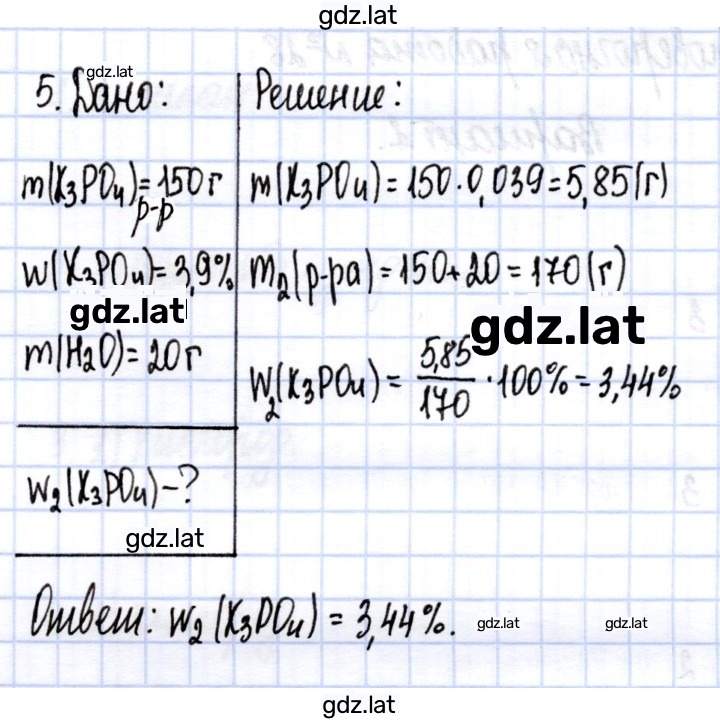 gdz.lat
gdz.lat
5. Дано:
m(K₃PO₄) р-р = 150 г
w(K₃PO₄) = 3,9%
gdz.lat
m(H₂O) = 20 г
w₂(K₃PO₄) - ?
gdz.lat
Решение:
m(K₃PO₄) = 150 · 0,039 = 5,85 (г)
m₂(р-ра) = 150 + 20 = 170 (г)
gdz.lat
W₂(K₃PO₄) = 5,85/170 · 100% = 3,44%
Ответ: w₂(K₃PO₄) = 3,44%.
gdz.lat
gdz.lat
gdz.lat